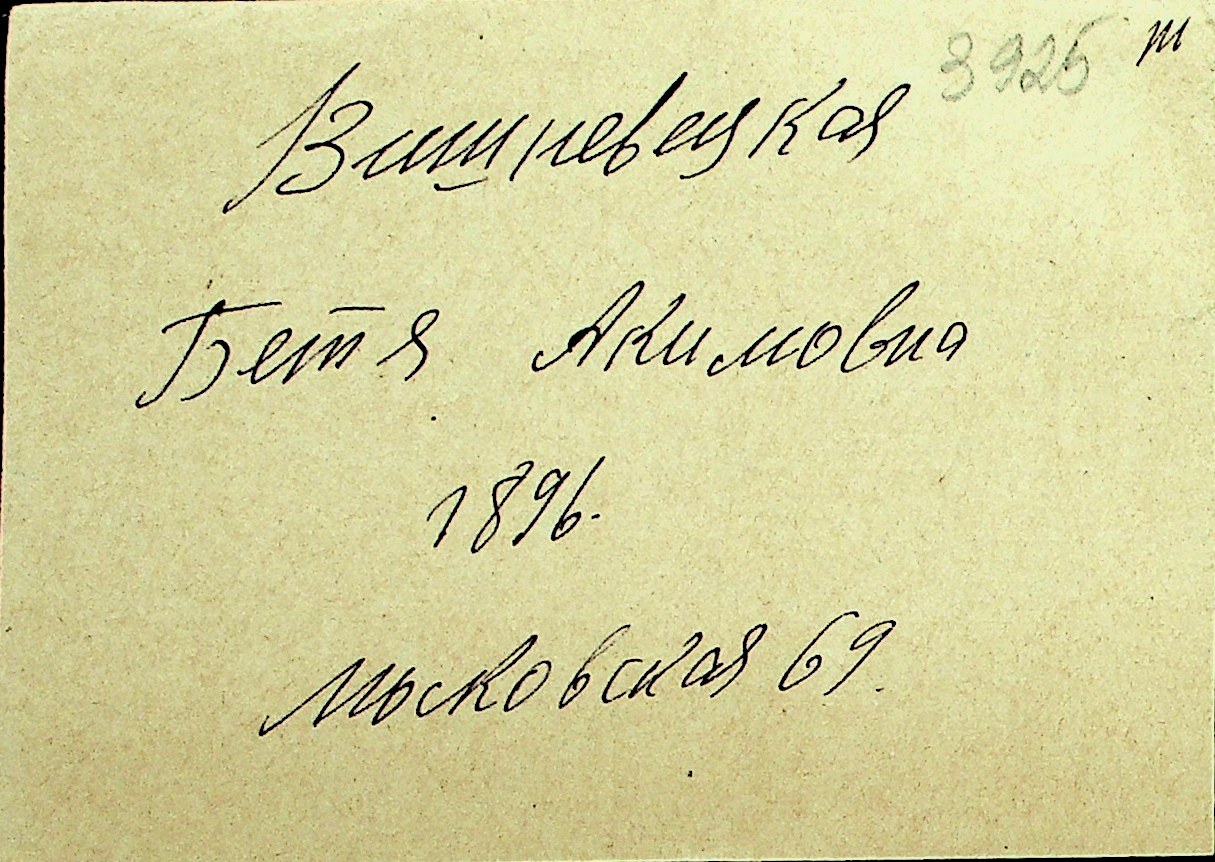 3925 т
Вишневецкая
Бетя Акимовна
1896.
Московская 69.